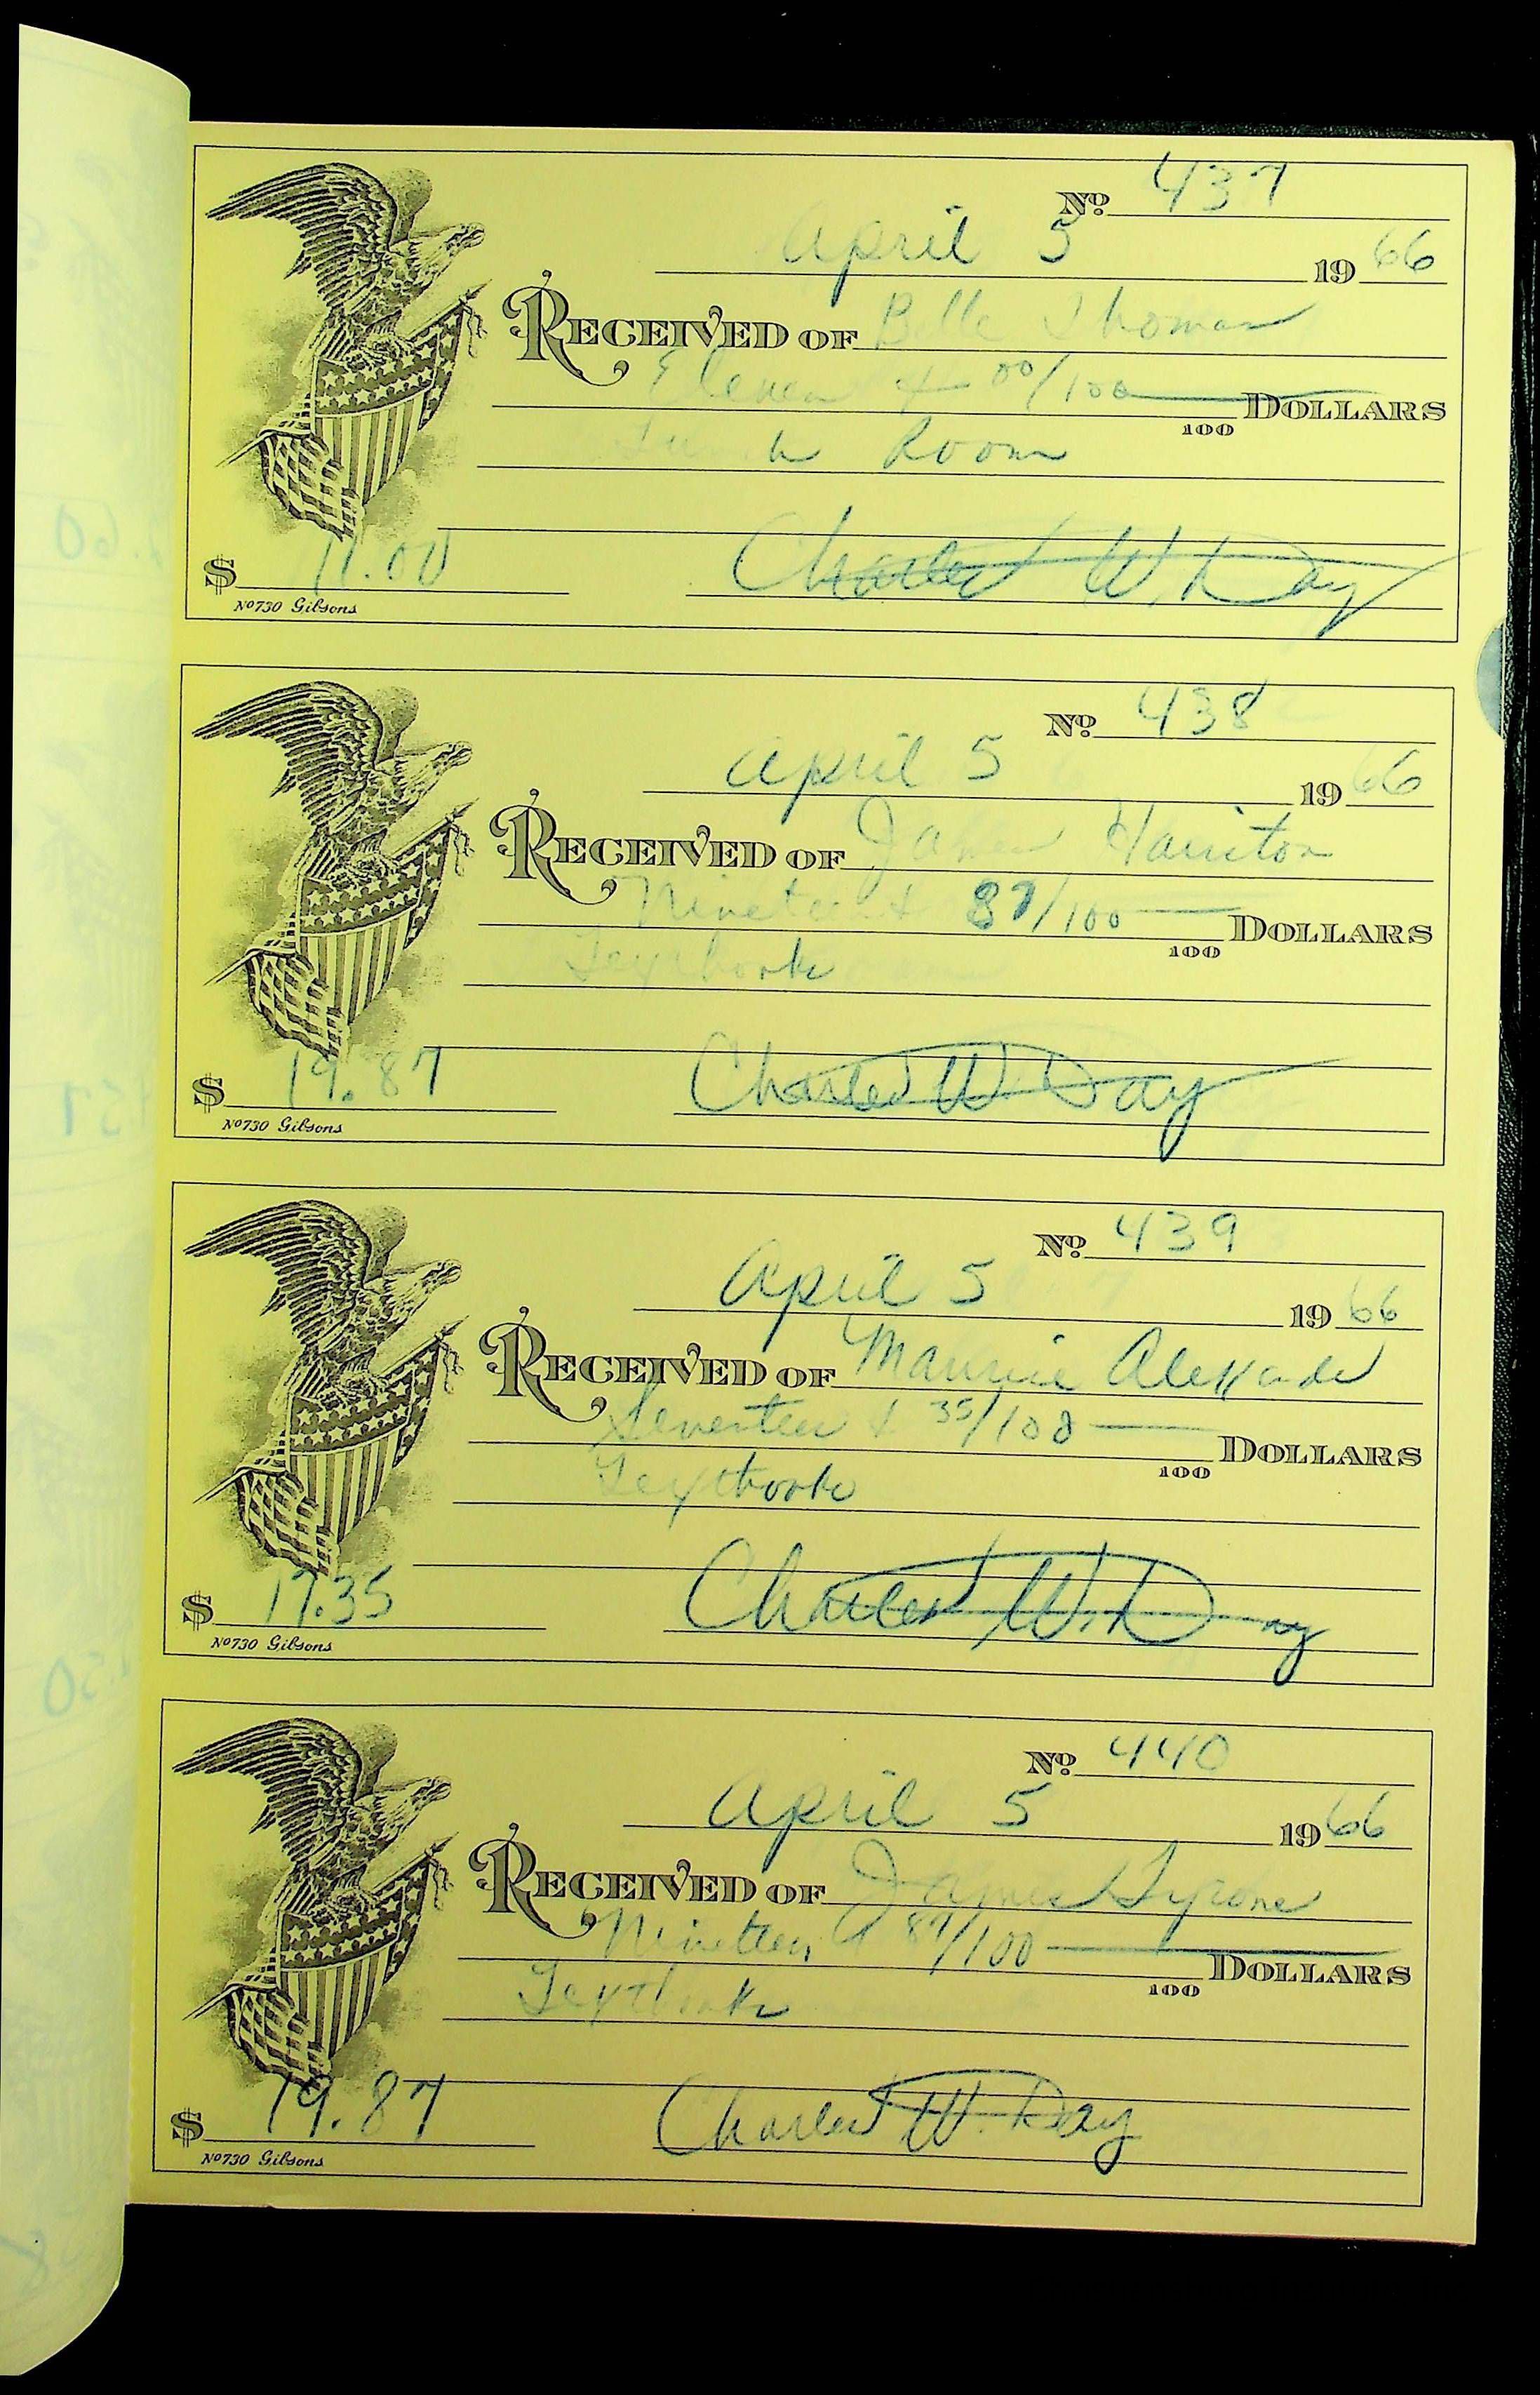 No. 437
April 5 1966
RECEIVED OF Belle Thomas
Eleven & 00/100 DOLLARS
100
Lunch Room
$ 11.00 Charles W. Day
No 730 Gibsons
No. 438
April 5 1966
RECEIVED OF Hairston
Nineteen & 87/100 DOLLARS
100
Textbooks
$ 19.87 Charles W. Day
No 730 Gibsons
No. 439
April 5 1966
RECEIVED OF Maurice Alexander
Seventeen & 35/100 DOLLARS
100
Textbooks
$ 17.35 Charles W. Day
No 730 Gibsons
No. 440
April 5 1966
RECEIVED OF James Tyrone
Nineteen & 87/100 DOLLARS
100
Textbooks
$ 19.87 Charles W. Day
No 730 Gibsons